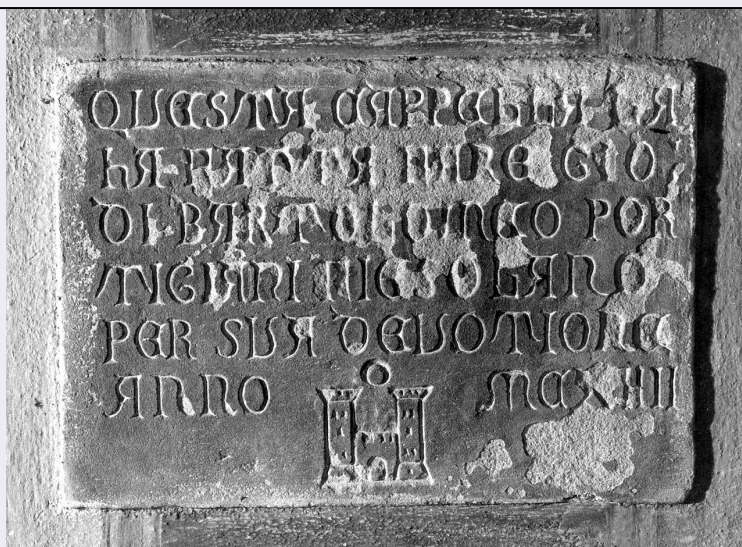 QUESTA CAPPELLA LA
HA FATTA FARE GIO
DI BARTOLOMEO POR
TIGIANI FIESOLANO
PER SUA DEVOTIONE
ANNO